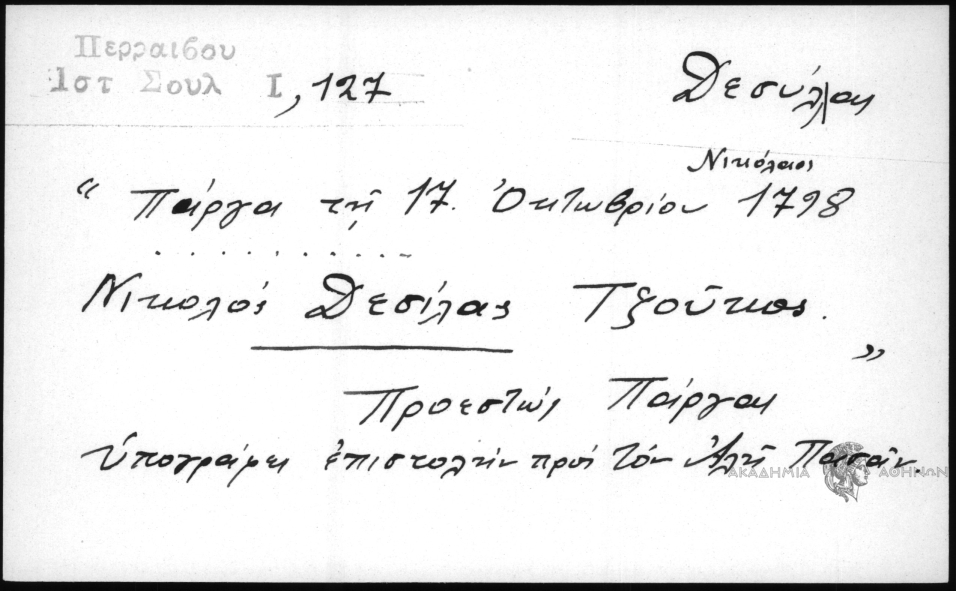 Περραιβου
Ιστ Σουλ Ι, 127
Δεσύλλας
Νικόλαος
“ Πάργα τῇ 17. Ὀκτωβρίου 1798
. . . . . . . . . .
Νικολός Δεσίλας Τζούκος. ”
Προεστώς Πάργας
ὑπογράφει ἐπιστολήν πρός τόν Ἀλῆ Πασᾶν.
ΑΚΑΔΗΜΙΑ ΑΘΗΝΩΝ